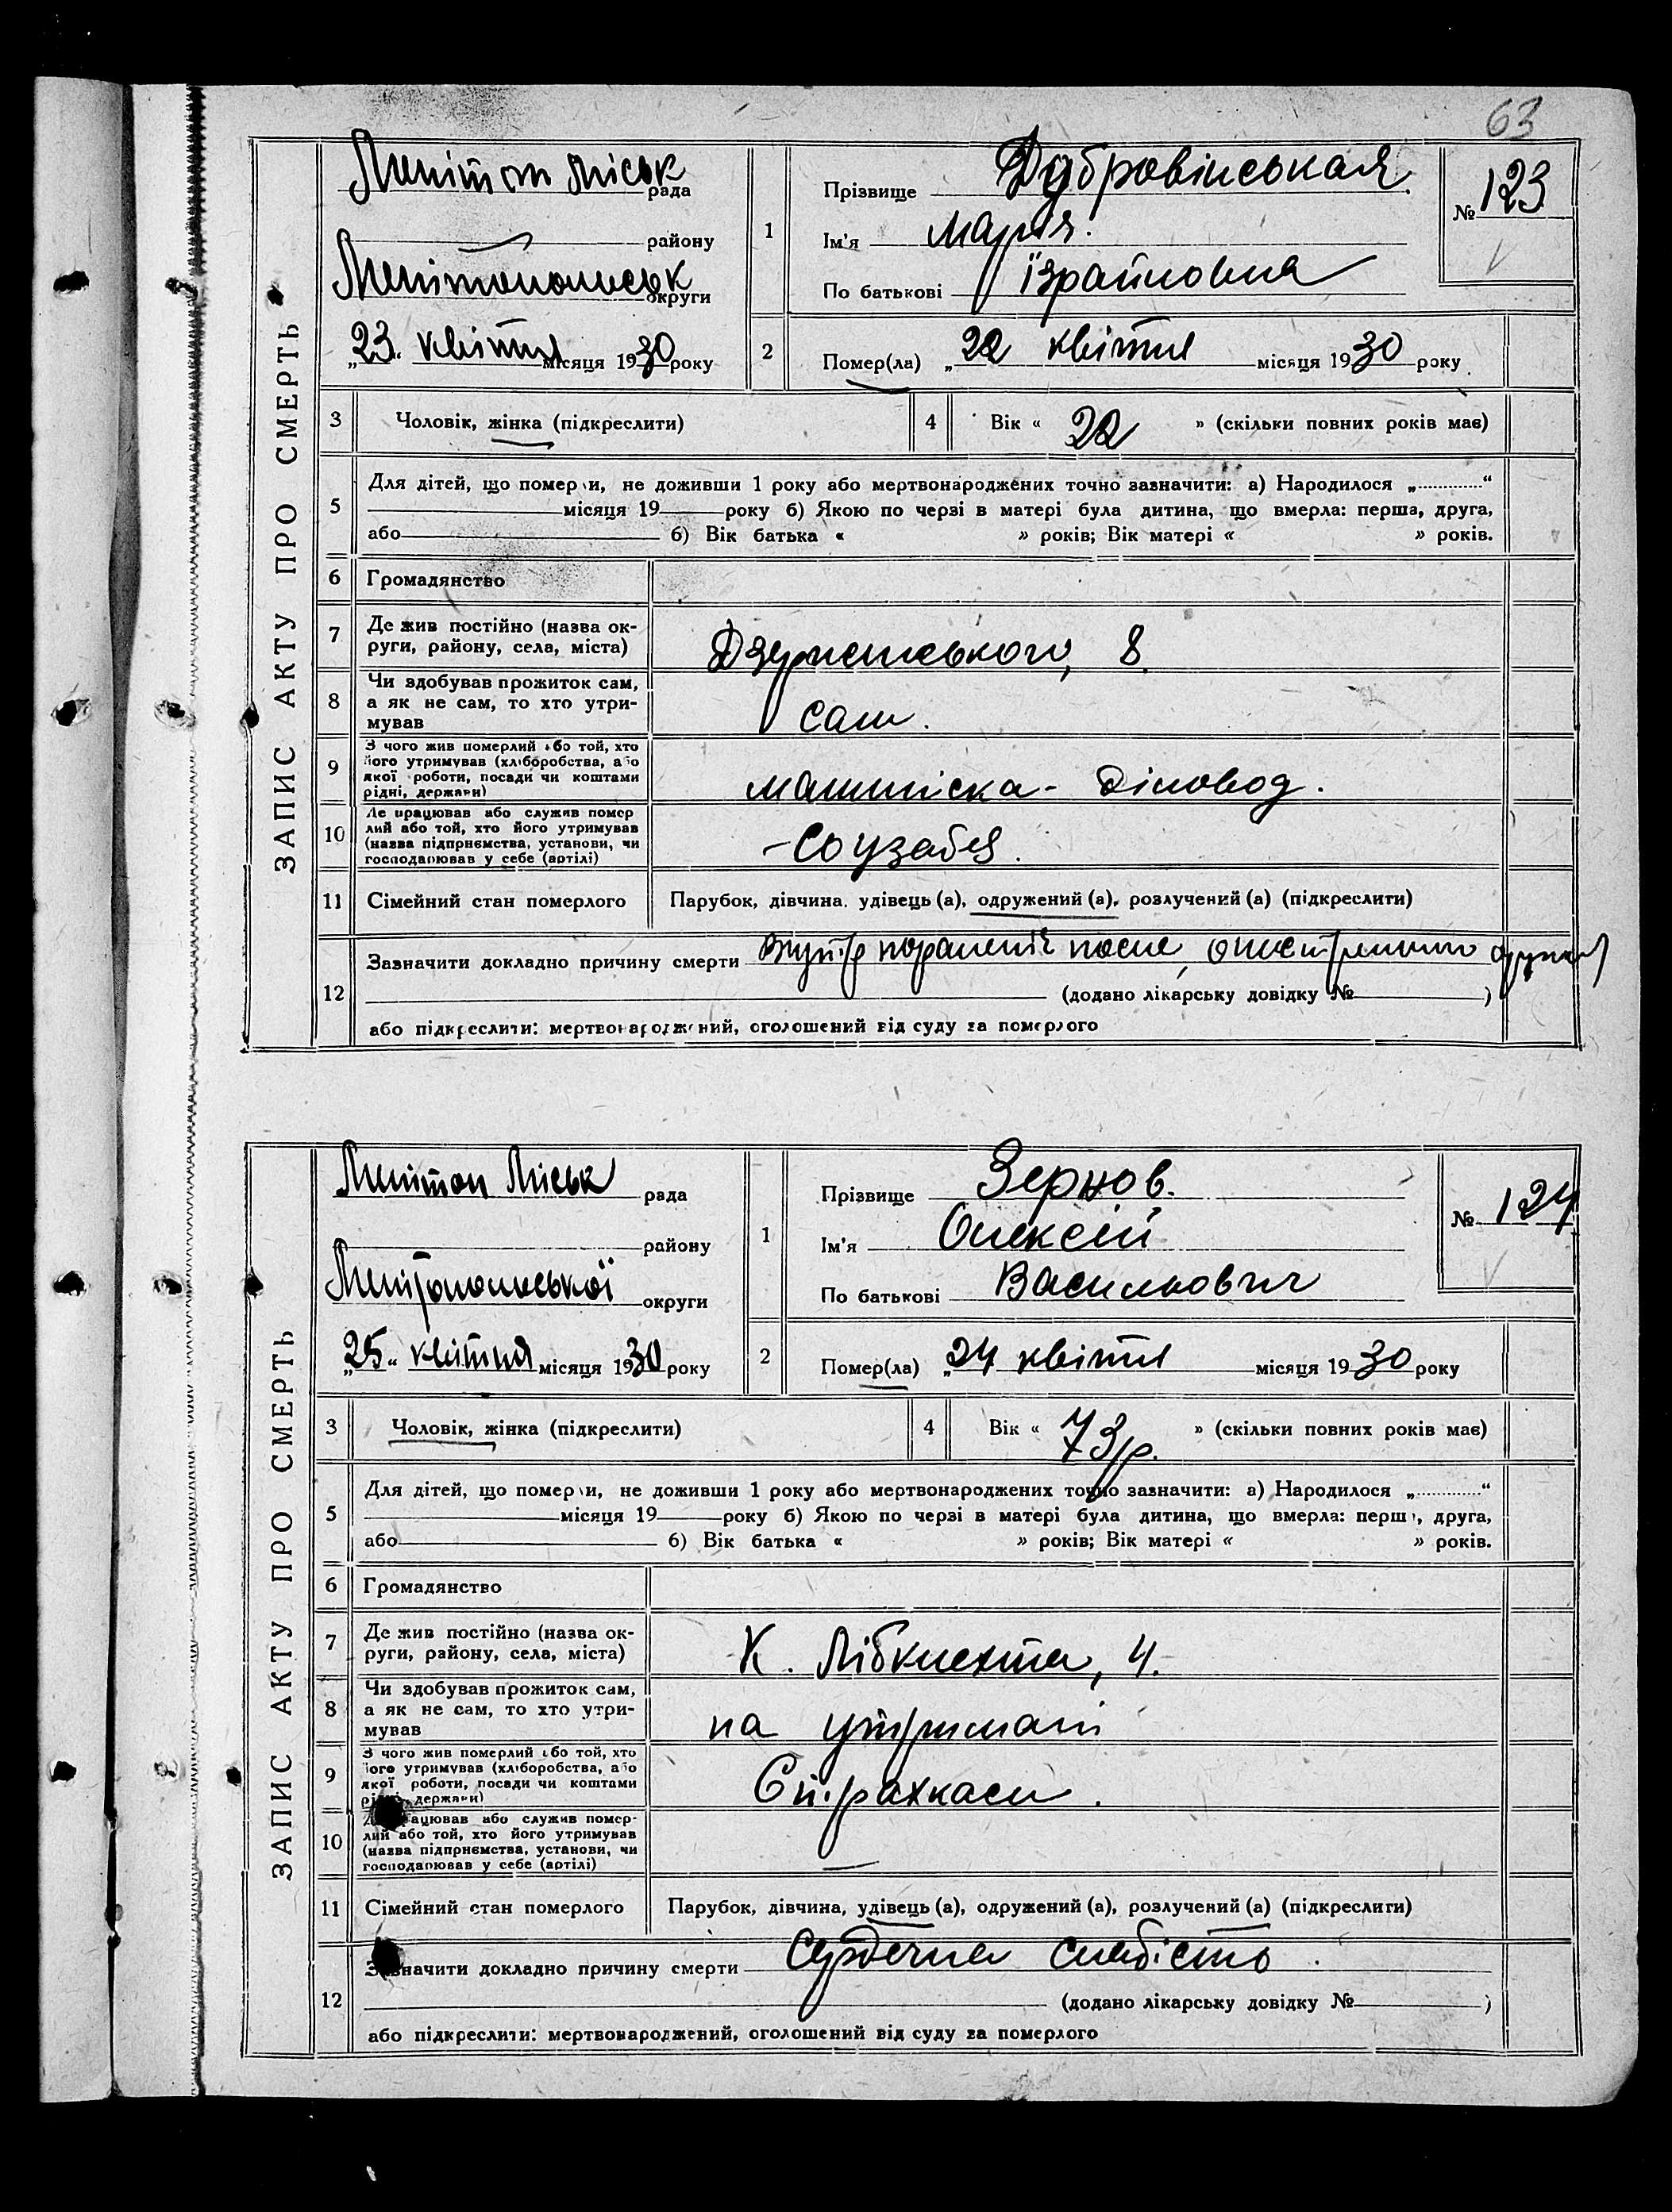 63
ЗАПИС АКТУ ПРО СМЕРТЬ
Меліт оп Міськ рада
району
Мелітопольськ округи
„23" квітня місяця 1930 року
1
Прізвище Дубровінськая
Ім'я Марія.
По батькові Ізраїловна
№ 123
2
Помер(ла) „22 квітня місяця 1930 року
3 Чоловік, жінка (підкреслити)
4 Вік « 22 » (скільки повних років має)
5 Для дітей, що померли, не доживши 1 року або мертвонароджених точно зазначити: а) Народилося „ “
місяця 19 року б) Якою по черзі в матері була дитина, що вмерла: перша, друга,
або б) Вік батька « » років; Вік матері « » років.
6 Громадянство
7 Де жив постійно (назва ок-
руги, району, села, міста)
Дзержинського, 8
8 Чи здобував прожиток сам,
а як не сам, то хто утри-
мував
сам.
9 З чого жив померлий або той, хто
його утримував (хліборобства, або
якої роботи, посади чи коштами
рідні, держави)
машиніска - діловод.
10 Де працював або служив помер
лий або той, хто його утримував
(назва підприємства, установи, чи
господарював у себе (артілі)
- Соузхлеб.
11 Сімейний стан померлого
Парубок, дівчина, удівець (а), одружений (а), розлучений (а) (підкреслити)
12 Зазначити докладно причину смерти поранення после
(додано лікарську довідку № )
або підкреслити: мертвонароджений, оголошений від суду за померлого
ЗАПИС АКТУ ПРО СМЕРТЬ
Мелітоп Міськ рада
району
Мелітопольської округи
„25" квітня місяця 1930 року
1
Прізвище Зернов.
Ім'я Олексій
По батькові Васильович
№ 124
2
Помер(ла) „24 квітня місяця 1930 року
3 Чоловік, жінка (підкреслити)
4 Вік « 73 р. » (скільки повних років має)
5 Для дітей, що померли, не доживши 1 року або мертвонароджених точно зазначити: а) Народилося „ “
місяця 19 року б) Якою по черзі в матері була дитина, що вмерла: перша, друга,
або б) Вік батька « » років; Вік матері « » років.
6 Громадянство
7 Де жив постійно (назва ок-
руги, району, села, міста)
К. Лібкнехта, 4.
8 Чи здобував прожиток сам,
а як не сам, то хто утри-
мував
на утримані
9 З чого жив померлий або той, хто
його утримував (хліборобства, або
якої роботи, посади чи коштами
рідні, держави)
Страхкаси.
10 Де працював або служив помер-
лий або той, хто його утримував
(назва підприємства, установи, чи
господарював у себе (артілі)
—
11 Сімейний стан померлого
Парубок, дівчина, удівець (а), одружений (а), розлучений (а) (підкреслити)
12 Зазначити докладно причину смерти Сердечна слабість.
(додано лікарську довідку № )
або підкреслити: мертвонароджений, оголошений від суду за померлого